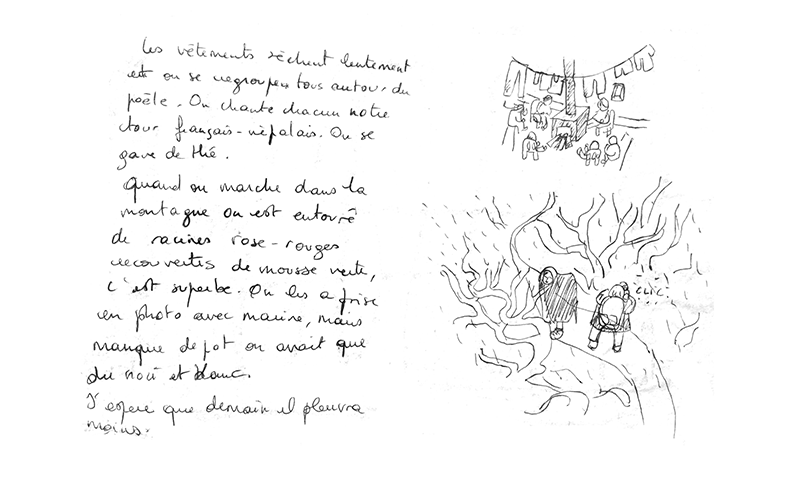 Les vêtements sèchent lentement
et on se regroupe tous autour du
poêle. On chante chacun notre
tour français-népalais. On se
gave de thé.
Quand on marche dans la
montagne on est entouré
de racines rose-rouges
recouvertes de mousse verte,
c'est superbe. On les a prise
en photo avec marine, mais
manque de pot on avait que
du noir et blanc.
J'espere que demain il pleuvra
moins.
CLIC